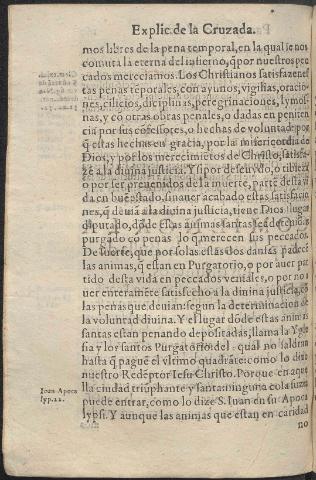 Explic. de la Cruzada.
mos libres de la pena temporal, en la qual se nos
comuta la eterna del infierno, q̃ por nuestros pe
cados mereciamos. Los Christianos satisfazen est
tas penas temporales, con ayunos, vigilias, oracio
nes, cilicios, diciplinas, peregrinaciones, lymos-
nas, y cõ otras obras penales, o dadas en peniten
cia por sus cõfessores, o hechas de voluntad: porq̃
q̃ estas hechas en gracia, por la misericordia de
Dios, y por los merecimiẽtos de Christo, satisfa-
zẽ a la diuina justicia. Y si por descuydo, o tibieza
o por ser preuenidos de la muerte, parte desta vi
da en buẽ estado, sin auer acabado estas satisfacio
nes, q̃ deuia a la diuina justicia, tiene Dios lugar
diputado, dõde estas animas santas seã detenidas
purgãdo cõ penas lo q̃ merecen sus peccados.
De suerte, que por solas estas dos causas padecẽ
las animas, q̃ estan en Purgatorio, o por auer par
tido desta vida en peccados veniales, o por no a
uer enteramẽte satisfecho a la diuina justicia, cõ
las penas que deuian: segun la determinacion de
la voluntad diuina. Y el lugar dõde estas animas
santas estan penando depositadas, llama la Ygle
sia y los santos Purgatorio: del qual no saldran
hasta q̃ paguẽ el vltimo quadrãte: como lo dixo
nuestro Redẽptor Iesu Christo. Porque en aque
Ioan. Apoca
lyp. 21.
lla ciudad triũphante y santa: ninguna cosa suzia
puede entrar, como lo dize S. Iuan en su Apoca
lypsi. Y aunque las animas que estan en caridad
no